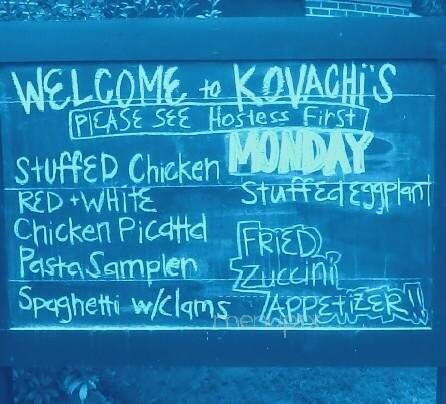 WELCOME to KOVACHi'S
PLEASE SEE Hostess First
MONDAY
Stuffed Chicken
RED + WHITE
Chicken Picatta
Pasta Sampler
Spaghetti w/Clams
Stuffed Eggplant
FRIED
Zuccini
/APPETIZER!!